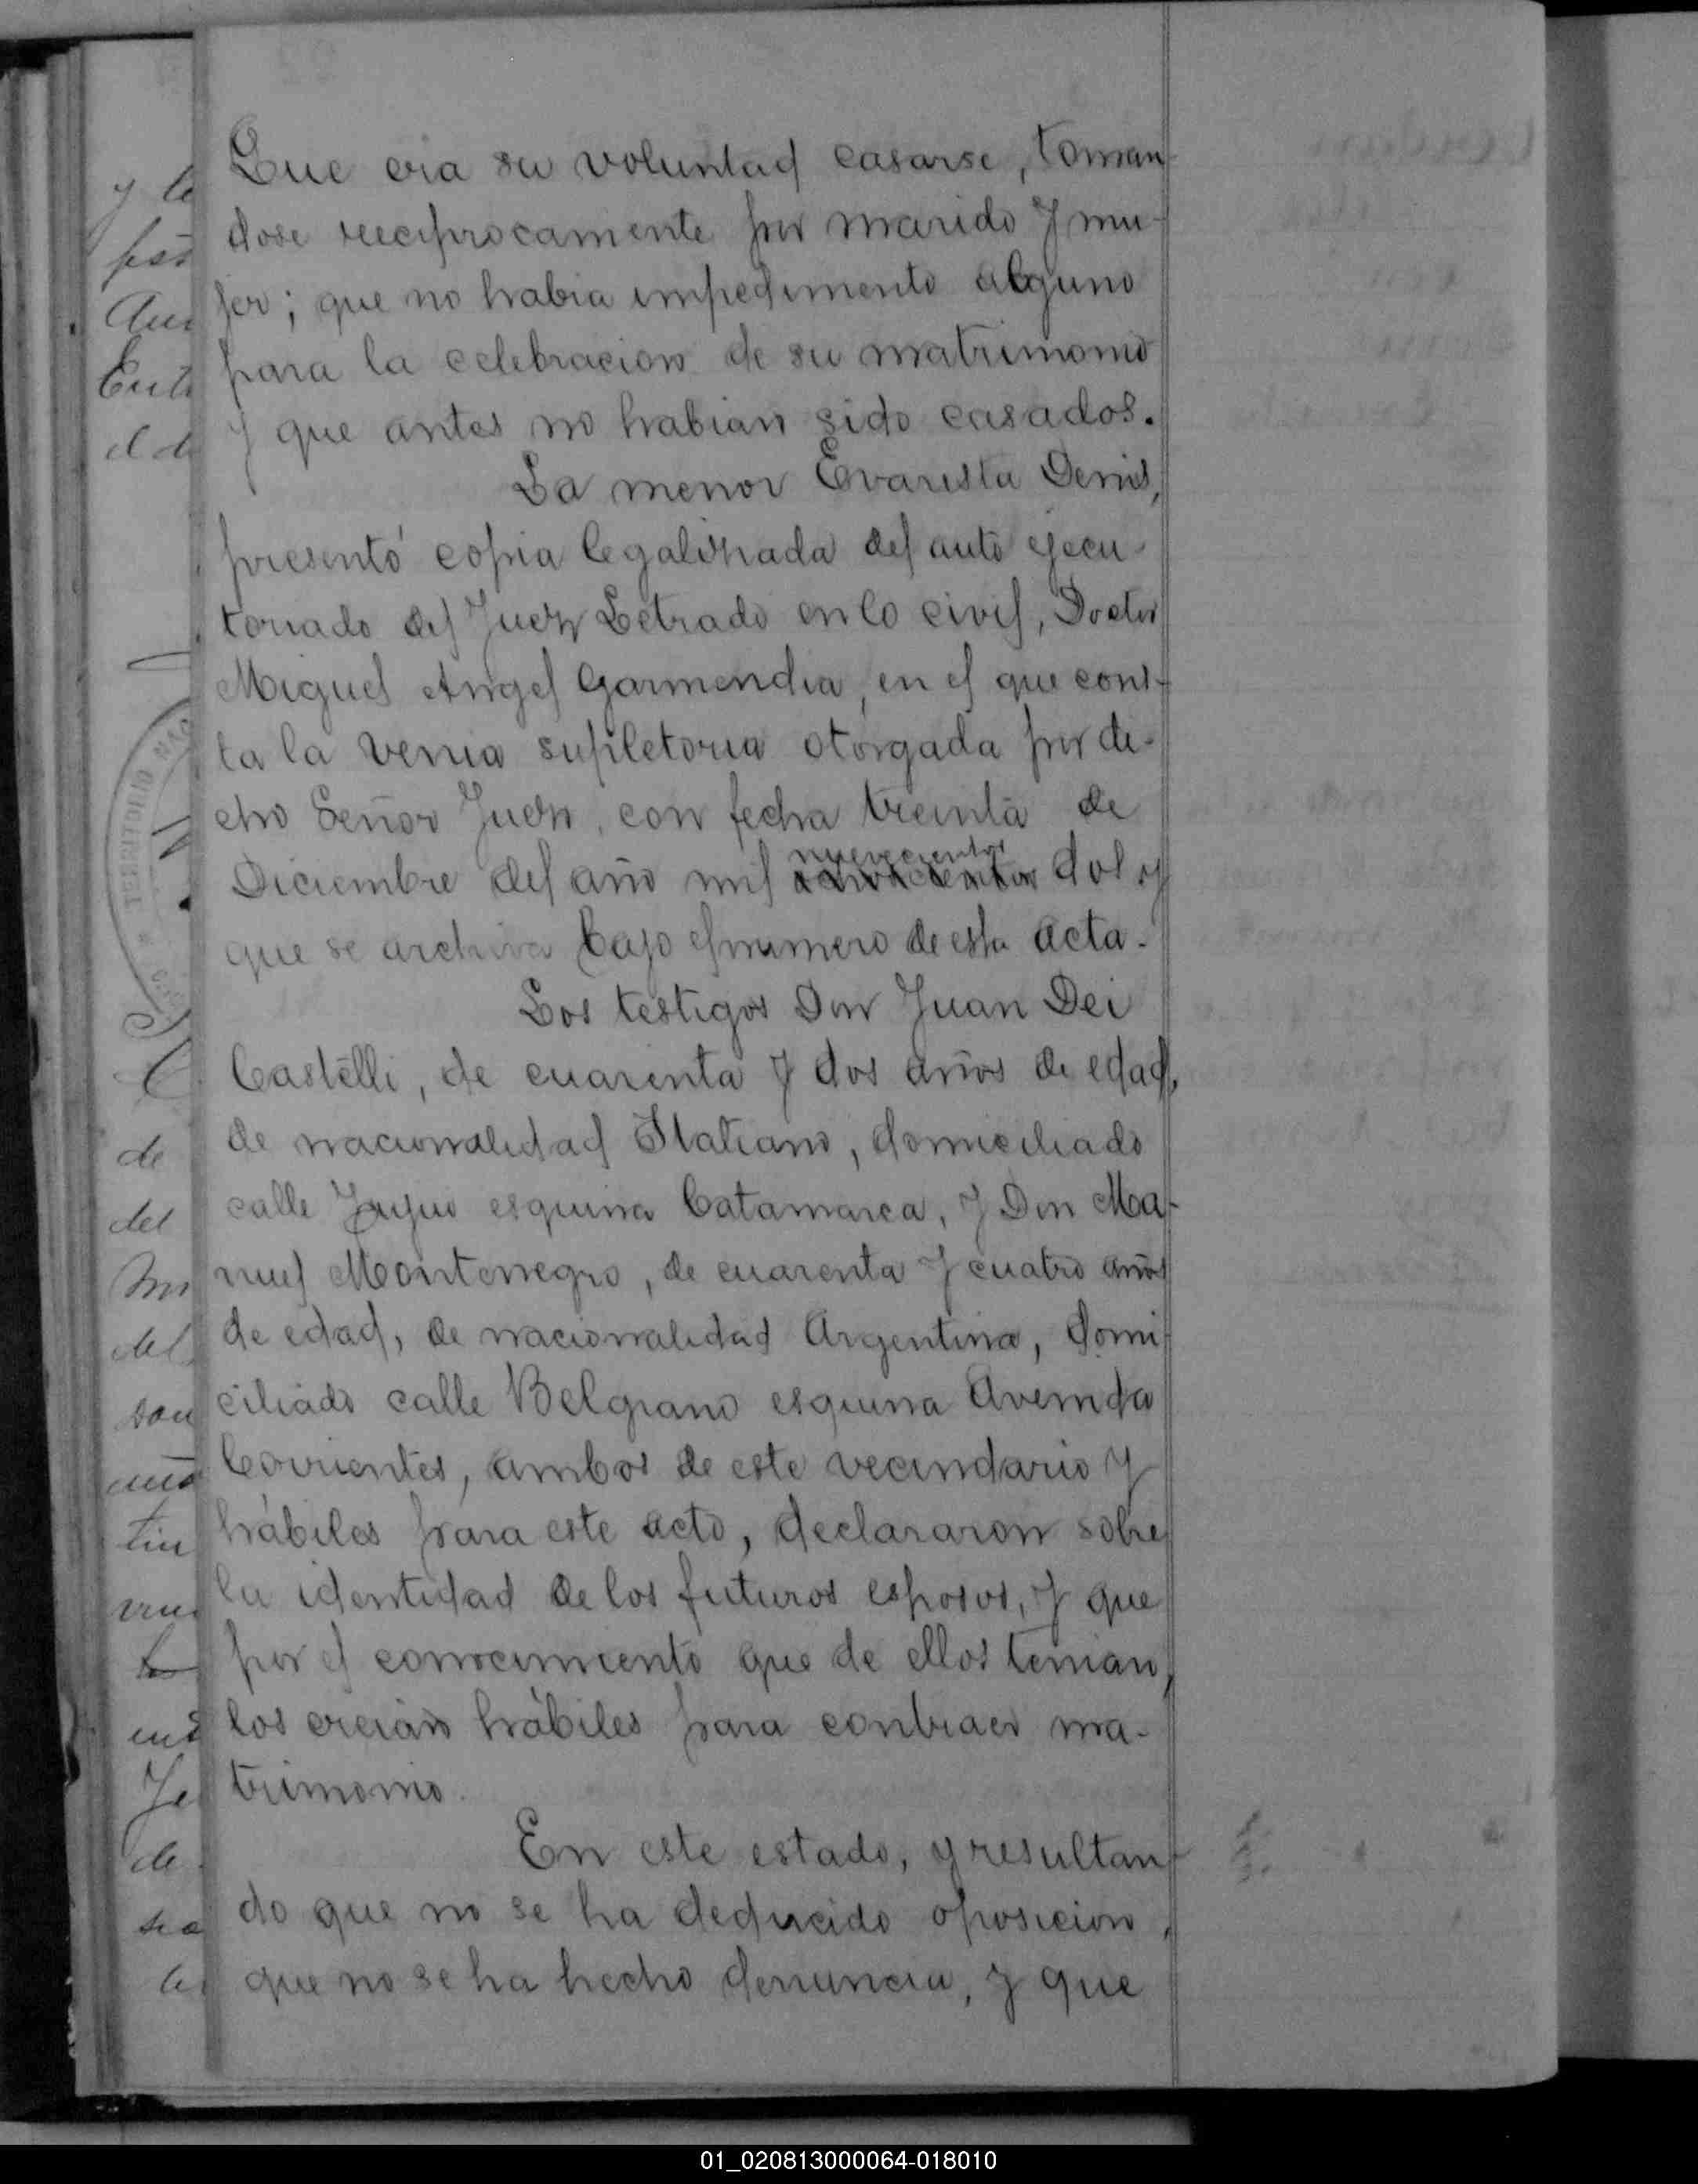 Que era su voluntad casarse, toman-
dose reciprocamente por marido y mu-
jer; que no habia impedimento alguno
para la celebracion de su matrimonio
y que antes no habian sido casados.
La menor Evarista Denis,
presentó copia legalizada del auto ejecu-
toriado del Juez Letrado en lo civil, Doctor
Miguel Angel Garmendia, en el que cons-
ta la venia supletoria otorgada por di-
cho Señor Juez, con fecha treinta de
nuevecientos
Diciembre del año mil dos y
que se archiva bajo el numero de esta acta.
Los testigos Don Juan Dei
Castelli, de cuarenta y dos años de edad,
de nacionalidad Italiano, domiciliado
calle Jujuy esquina Catamarca, y Don Ma-
nuel Montenegro, de cuarenta y cuatro años
de edad, de nacionalidad Argentina, domi-
ciliado calle Belgrano esquina Avenida
Corrientes, ambos de este vecindario y
hábiles para este acto, declararon sobre
la identidad de los futuros esposos, y que
por el conocimiento que de ellos tenian,
los creian hábiles para contraer ma-
trimonio.
En este estado, y resultan-
do que no se ha deducido oposicion,
que no se ha hecho denuncia, y que
de
del
del
de
TERRITORIO
01_020813000064-018010